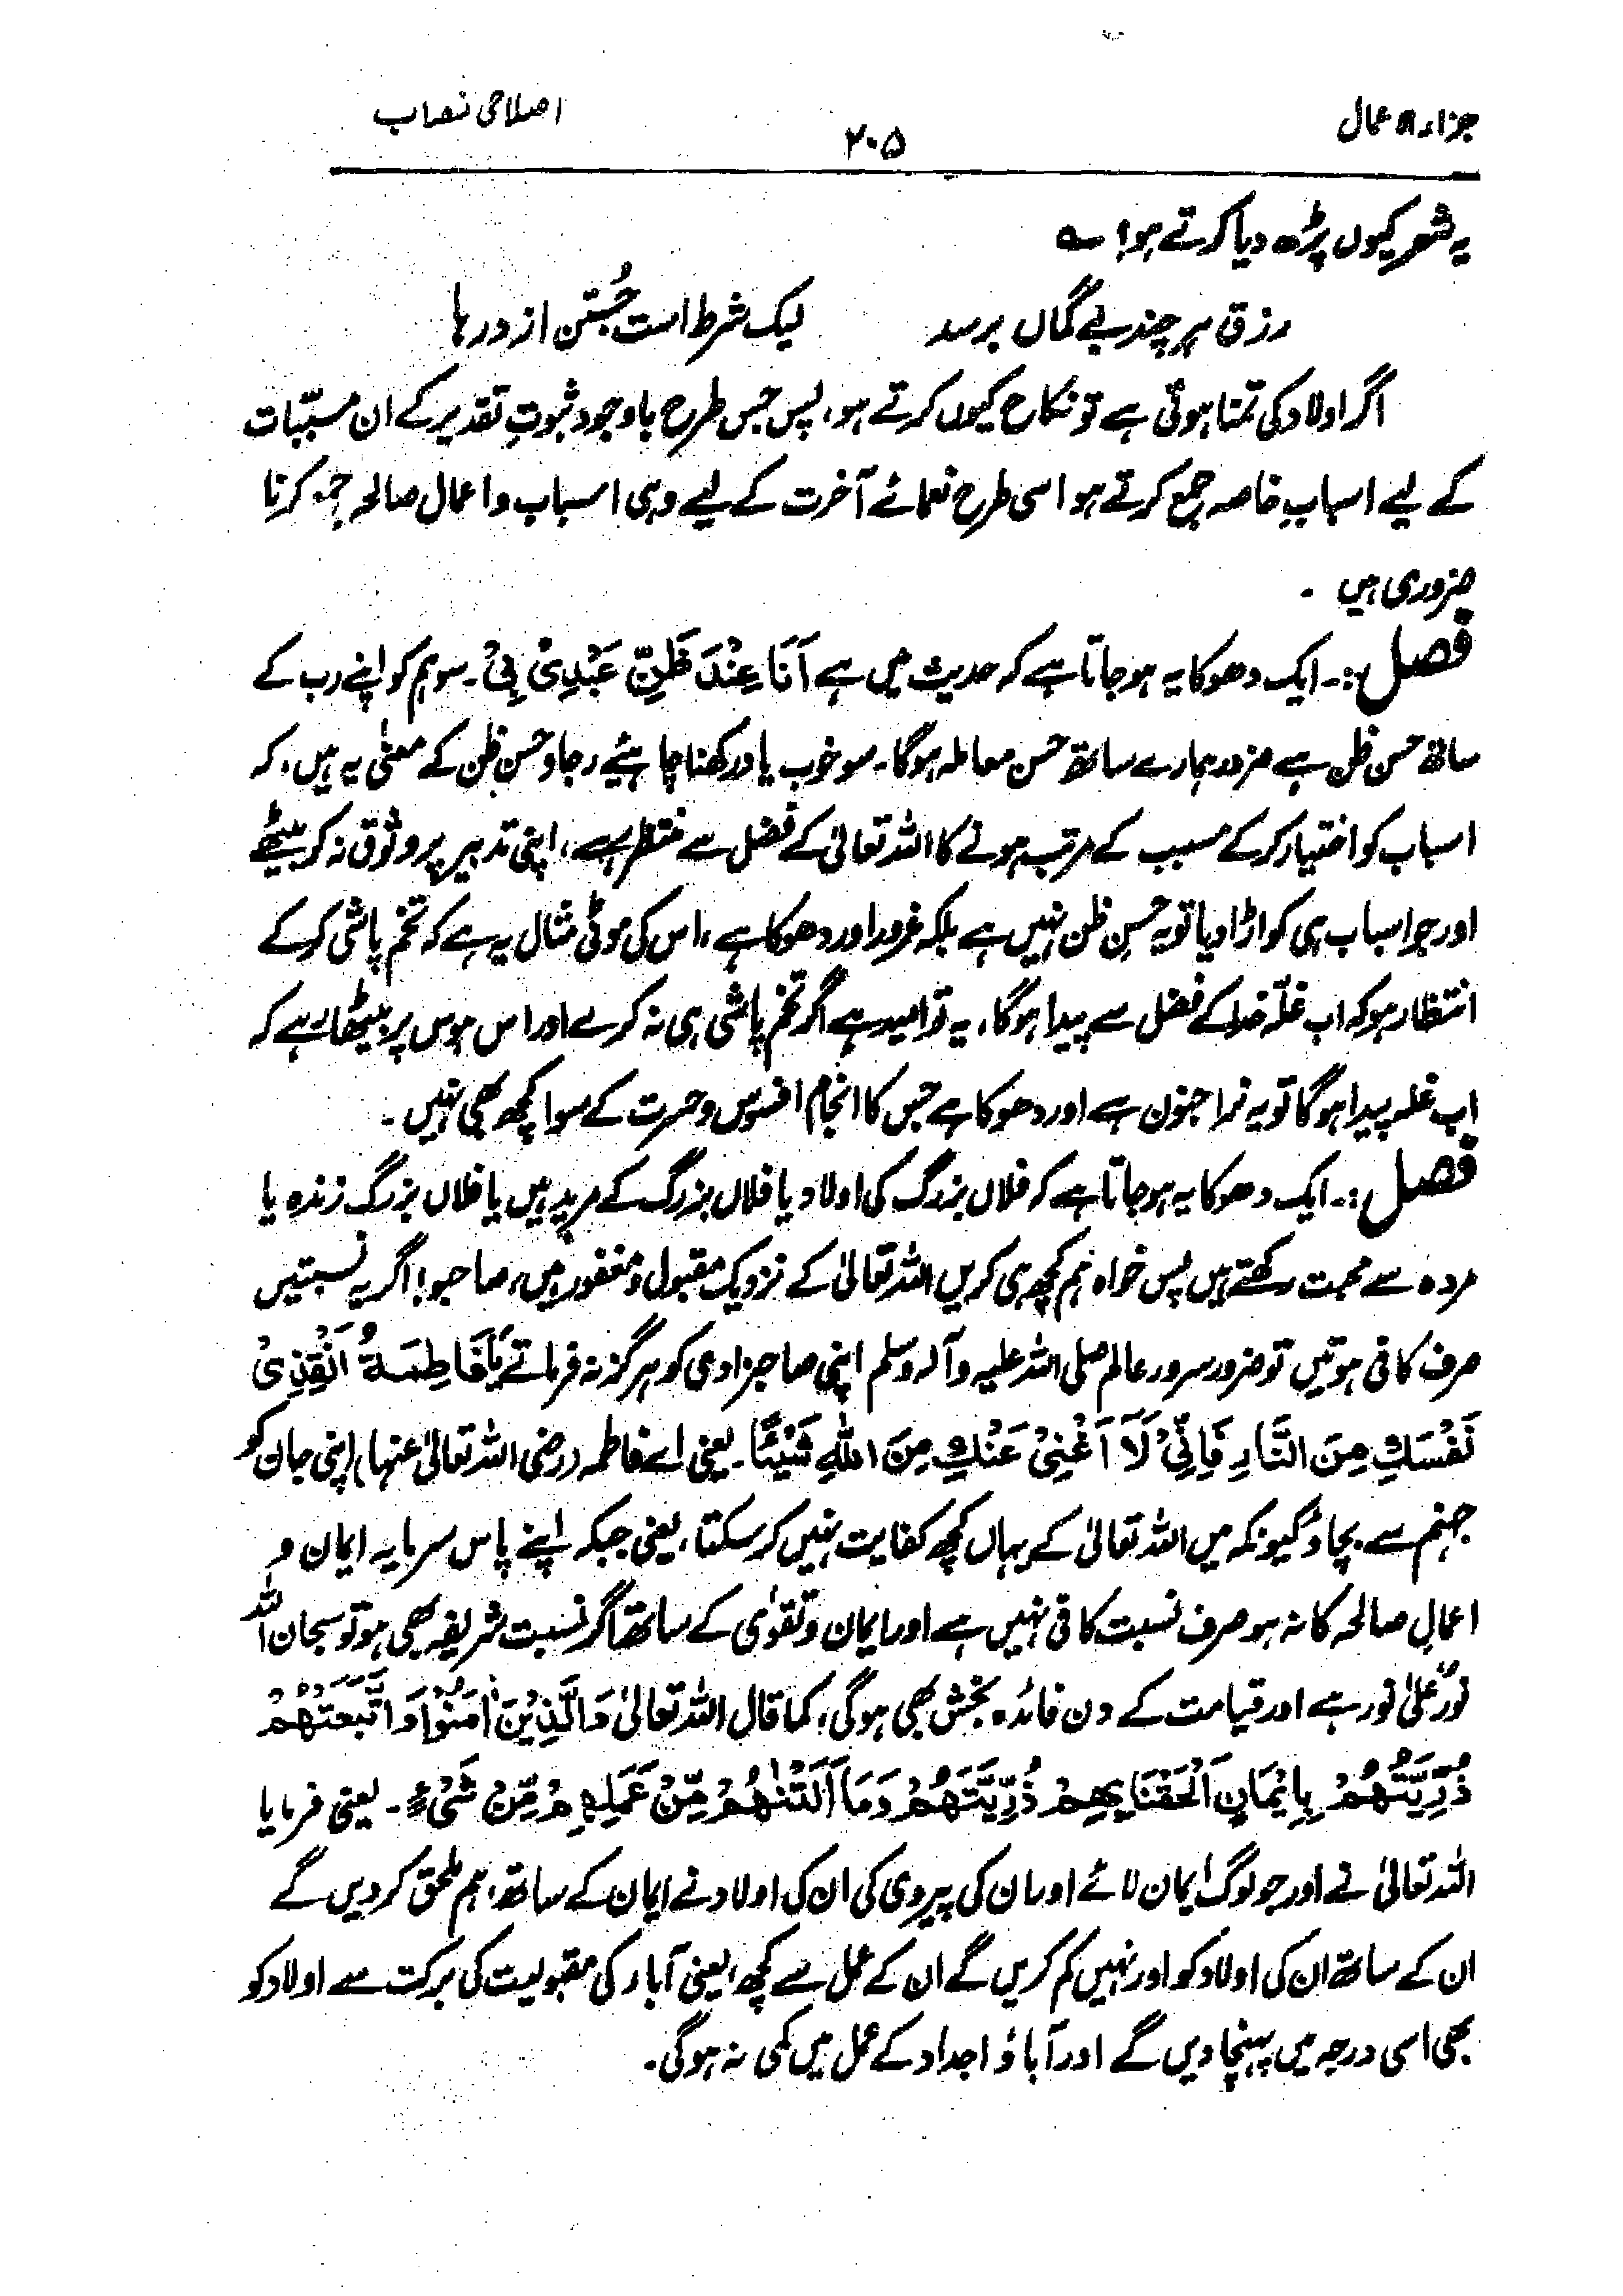 جزاء الاعمال
۲۰۵
اصلاحی نصاب
یہ شعر کیوں پڑھ دیا کرتے ہو؟ ؎
رزق ہر چند بے گماں برسد لیک شرط است جُستن از درہا
اگر اولاد کی تمنا ہوتی ہے تو نکاح کیوں کرتے ہو، پس جس طرح باوجود ثبوتِ تقدیر کے ان مسبّبات
کے لیے اسبابِ خاصہ جمع کرتے ہو اسی طرح نعمائے آخرت کے لیے وہی اسباب و اعمال صالحہ جمع کرنا
ضروری ہیں ۔
فصل :۔ ایک دھوکا یہ ہو جاتا ہے کہ حدیث میں ہے اَنَا عِنْدَ ظَنِّ عَبْدِیْ بِیْ ۔ سو ہم کو اپنے رب کے
ساتھ حسن ظن ہے ضرور ہمارے ساتھ حسن معاملہ ہوگا۔ سو خوب یاد رکھنا چاہئیے رجا و حسنِ ظن کے معنٰی یہ ہیں، کہ
اسباب کو اختیار کر کے مسبب کے مرتب ہونے کا اللہ تعالیٰ کے فضل سے منتظر رہے، اپنی تدبیر پر وثوق نہ کر بیٹھے
اور جو اسباب ہی کو اڑا دیا تو یہ حسنِ ظن نہیں ہے بلکہ غرور اور دھوکا ہے، اس کی موٹی مثال یہ ہے کہ تخم پاشی کر کے
انتظار ہو کہ اب غلّہ خدا کے فضل سے پیدا ہوگا، یہ تو امید ہے اگر تخم پاشی ہی نہ کرے اور اس ہوس پر بیٹھا رہے کہ
اب غلہ پیدا ہوگا تو یہ نرا جنون ہے اور دھوکا ہے جس کا انجام افسوس و حسرت کے سوا کچھ بھی نہیں ۔
فصل :۔ ایک دھوکا یہ ہو جاتا ہے کہ فلاں بزرگ کی اولاد یا فلاں بزرگ کے مرید ہیں یا فلاں بزرگ زندہ یا
مردہ سے محبت رکھتے ہیں پس خواہ ہم کچھ ہی کریں اللہ تعالیٰ کے نزدیک مقبول و مغفور ہیں، صاحبو! اگر یہ نسبتیں
صرف کافی ہوتیں تو ضرور سرور عالم صلی اللہ علیہ وآلہ وسلم اپنی صاحبزادی کو ہرگز نہ فرماتے یَا فَاطِمَۃُ اَنْقِذِیْ
نَفْسَکِ مِنَ النَّارِ فَاِنِّیْ لَآ اُغْنِیْ عَنْکِ مِنَ اللّٰہِ شَیْئًا ۔ یعنی اے فاطمہ (رضی اللہ تعالیٰ عنہا) اپنی جان کو
جہنم سے بچاؤ کیونکہ میں اللہ تعالیٰ کے یہاں کچھ کفایت نہیں کر سکتا، یعنی جبکہ اپنے پاس سرمایہ ایمان و
اعمالِ صالحہ کا نہ ہو صرف نسبت کافی نہیں ہے اور ایمان و تقوٰی کے ساتھ اگر نسبت شریفہ بھی ہو تو سبحان اللہ
نورٌ علیٰ نور ہے اور قیامت کے دن فائدہ بخش بھی ہوگی، کما قال اللہ تعالیٰ وَالَّذِیْنَ اٰمَنُوْا وَاتَّبَعَتْھُمْ
ذُرِّیَّتُھُمْ بِاِیْمَانٍ اَلْحَقْنَا بِھِمْ ذُرِّیَّتَھُمْ وَمَآ اَلَتْنٰھُمْ مِّنْ عَمَلِھِمْ مِّنْ شَیْءٍ ۔ یعنی فرمایا
اللہ تعالیٰ نے اور جو لوگ ایمان لائے اور ان کی پیروی کی ان کی اولاد نے ایمان کے ساتھ، ہم ملحق کر دیں گے
ان کے ساتھ ان کی اولاد کو اور نہیں کم کریں گے ان کے عمل سے کچھ، یعنی آباء کی مقبولیت کی برکت سے اولاد کو
بھی اسی درجہ میں پہنچا دیں گے اور آباؤ اجداد کے عمل میں کمی نہ ہوگی۔